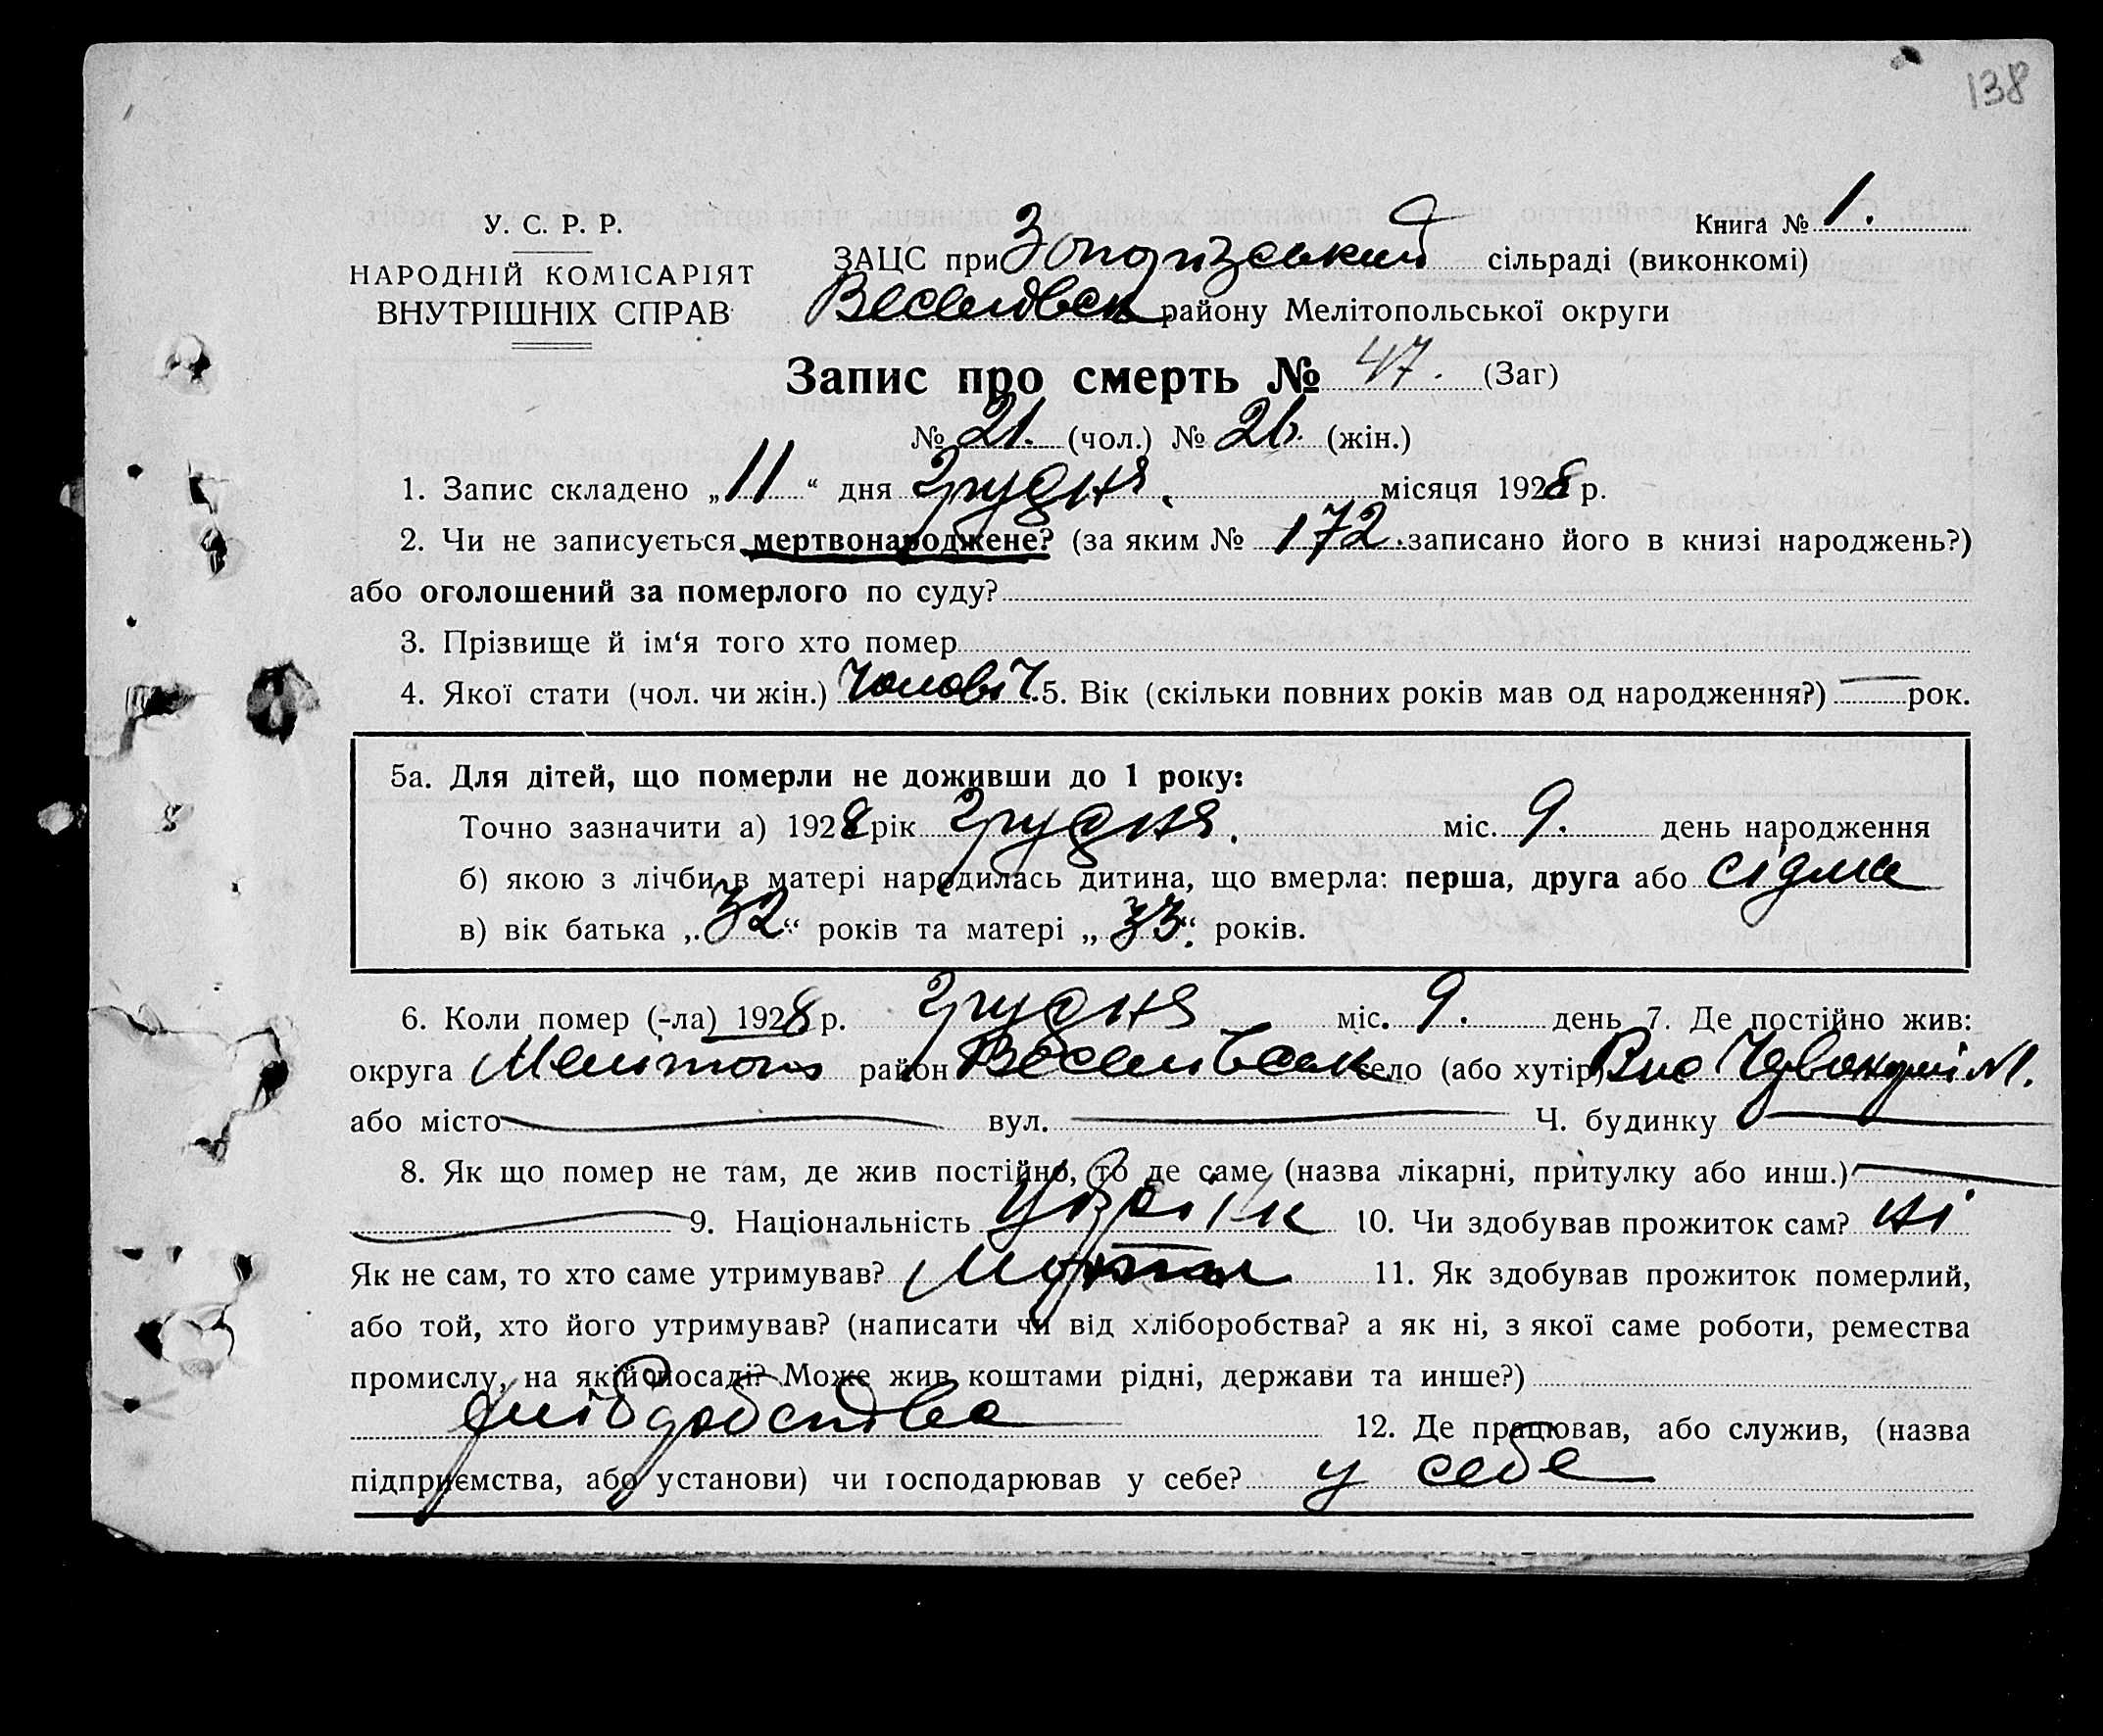 138
У. С. Р. Р.
НАРОДНІЙ КОМІСАРІЯТ
ВНУТРІШНІХ СПРАВ
Книга № 1.
ЗАЦС при сільраді (виконкомі)
Веселовськ району Мелітопольської округи
Запис про смерть № 47. (Заг)
№ 21. (чол.) № 26. (жін.)
1. Запис складено „11“ дня Грудня. місяця 1928 р.
2. Чи не записується мертвонароджене? (за яким № 172. записано його в книзі народжень?)
або оголошений за померлого по суду?
3. Прізвище й ім‘я того хто помер
4. Якої стати (чол. чи жін.) Чоловіч. 5. Вік (скільки повних років мав од народження?) — рок.
5а. Для дітей, що померли не доживши до 1 року:
Точно зазначити а) 1928 рік Грудня. міс. 9. день народження
б) якою з лічби в матері народилась дитина, що вмерла: перша, друга або сідма
в) вік батька „32“ років та матері „33“ років.
6. Коли помер (-ла) 1928 р. Грудня міс. 9. день 7. Де постійно жив:
округа Мелітоп район Веселівськ село (або хутір)
або місто — вул. — Ч. будинку —
8. Як що помер не там, де жив постійно, то де саме (назва лікарні, притулку або инш.) —
— 9. Національність 10. Чи здобував прожиток сам? ні
Як не сам, то хто саме утримував? 11. Як здобував прожиток померлий,
або той, хто його утримував? (написати чи від хліборобства? а як ні, з якої саме роботи, ремества
промислу, на якій посаді? Може жив коштами рідні, держави та инше?)
хліборобства 12. Де працював, або служив, (назва
підприємства, або установи) чи господарював у себе? у себе